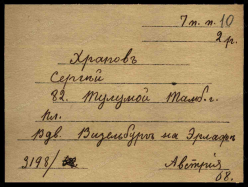 7 п. п. 10
2 р.
Храповъ
Сергѣй
82. Тамб. г.
Пл.
Вдв. Визельбургъ на Эрлафѣ
3198/
Австрія
08.